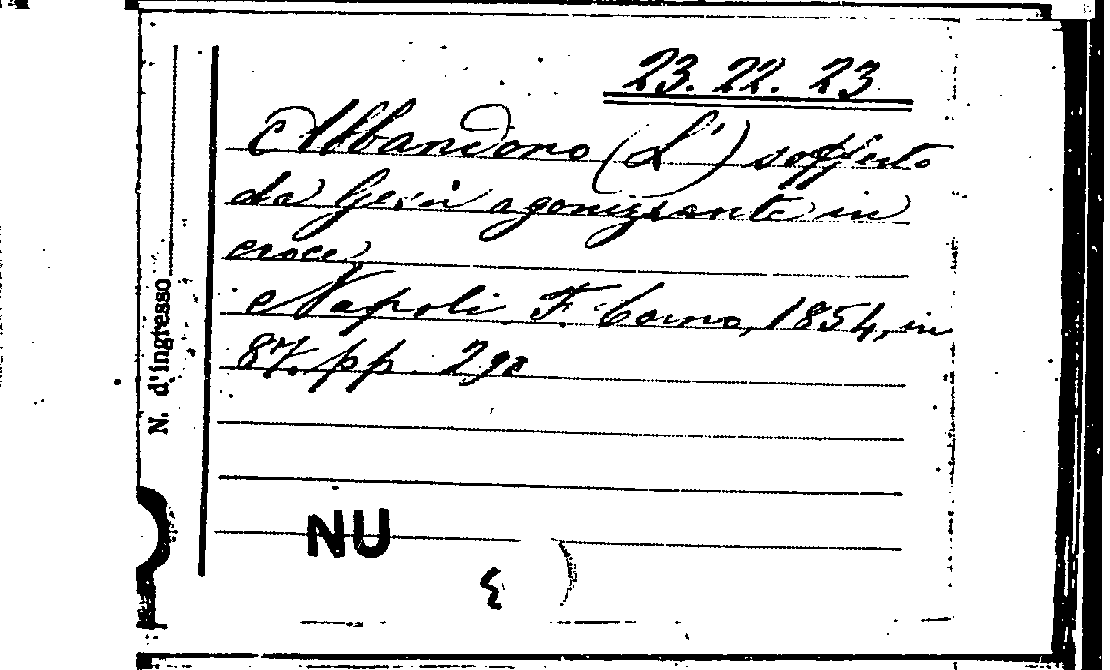 23. 22. 23
Abbandono (L') sofferto
da Gesù agonizzante in
croce.
Napoli F. Corno, 1854, in
8°. pp. 290
N. d'ingresso
NU